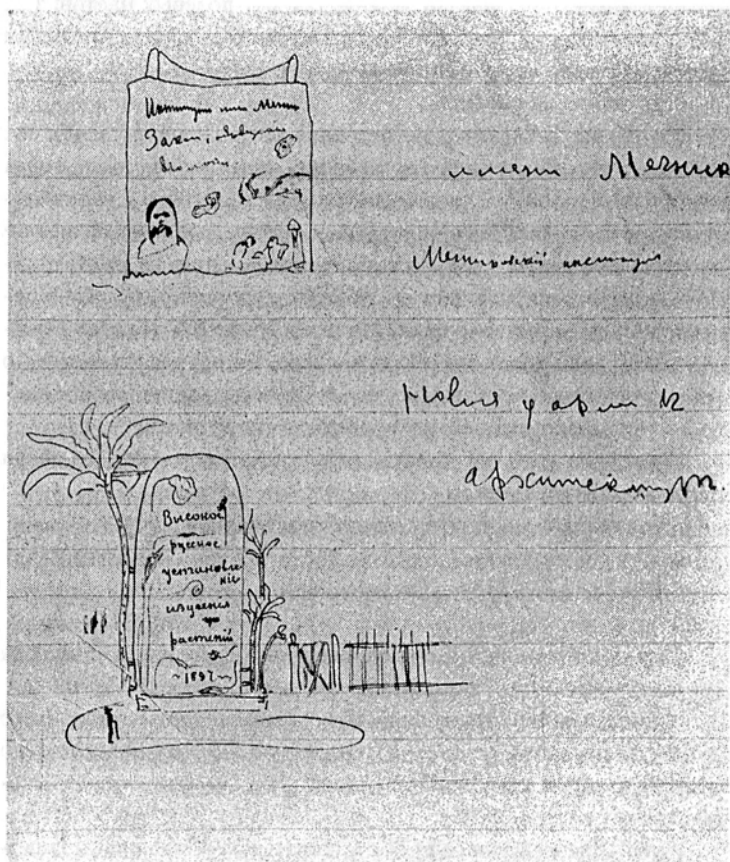 Институтъ имени Мечни
Закон,
Биологіи
имени Мечник
Мечниковскій институтъ
Новыя формы въ
архитектуръ.
Високое
русское
устиновле
ніе
изученія
растеній
~1892~